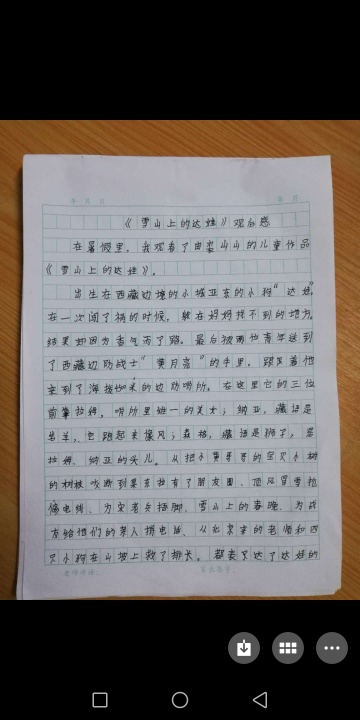 年 月 日
《雪山上的达娃》观后感
在暑假里，我观看了由裘山山的儿童作品
《雪山上的达娃》。
出生在西藏边境的小城亚东的小狗“达娃”
在一次闯了祸的时候，躲在妈妈找不到的地方，
结果却因为香气而了路。最后被两位青年送到
了西藏边防战士“黄月亮”的手里，跟着他
来到了海拔的边防哨所。在这里它的三位
前辈拉姆，哨所里唯一的美女；纳亚，藏语是
岩羊，它跑起来像风；森格，藏语是狮子，是
拉姆、纳亚的头儿。从把小黄哥哥的宝贝小树
的树枝咬断到果东拉有了朋友圈、顶风冒雪拉
电线、为老兵插脚、雪山上的春晚、为战
友给他们的家人捐电话、从北京来的老师和四
只小狗在山坡上救了排长。都表达了达娃的